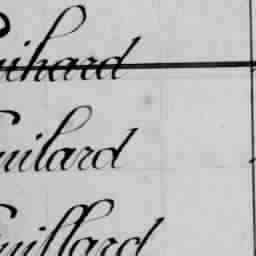 uihard
uilard
uillard